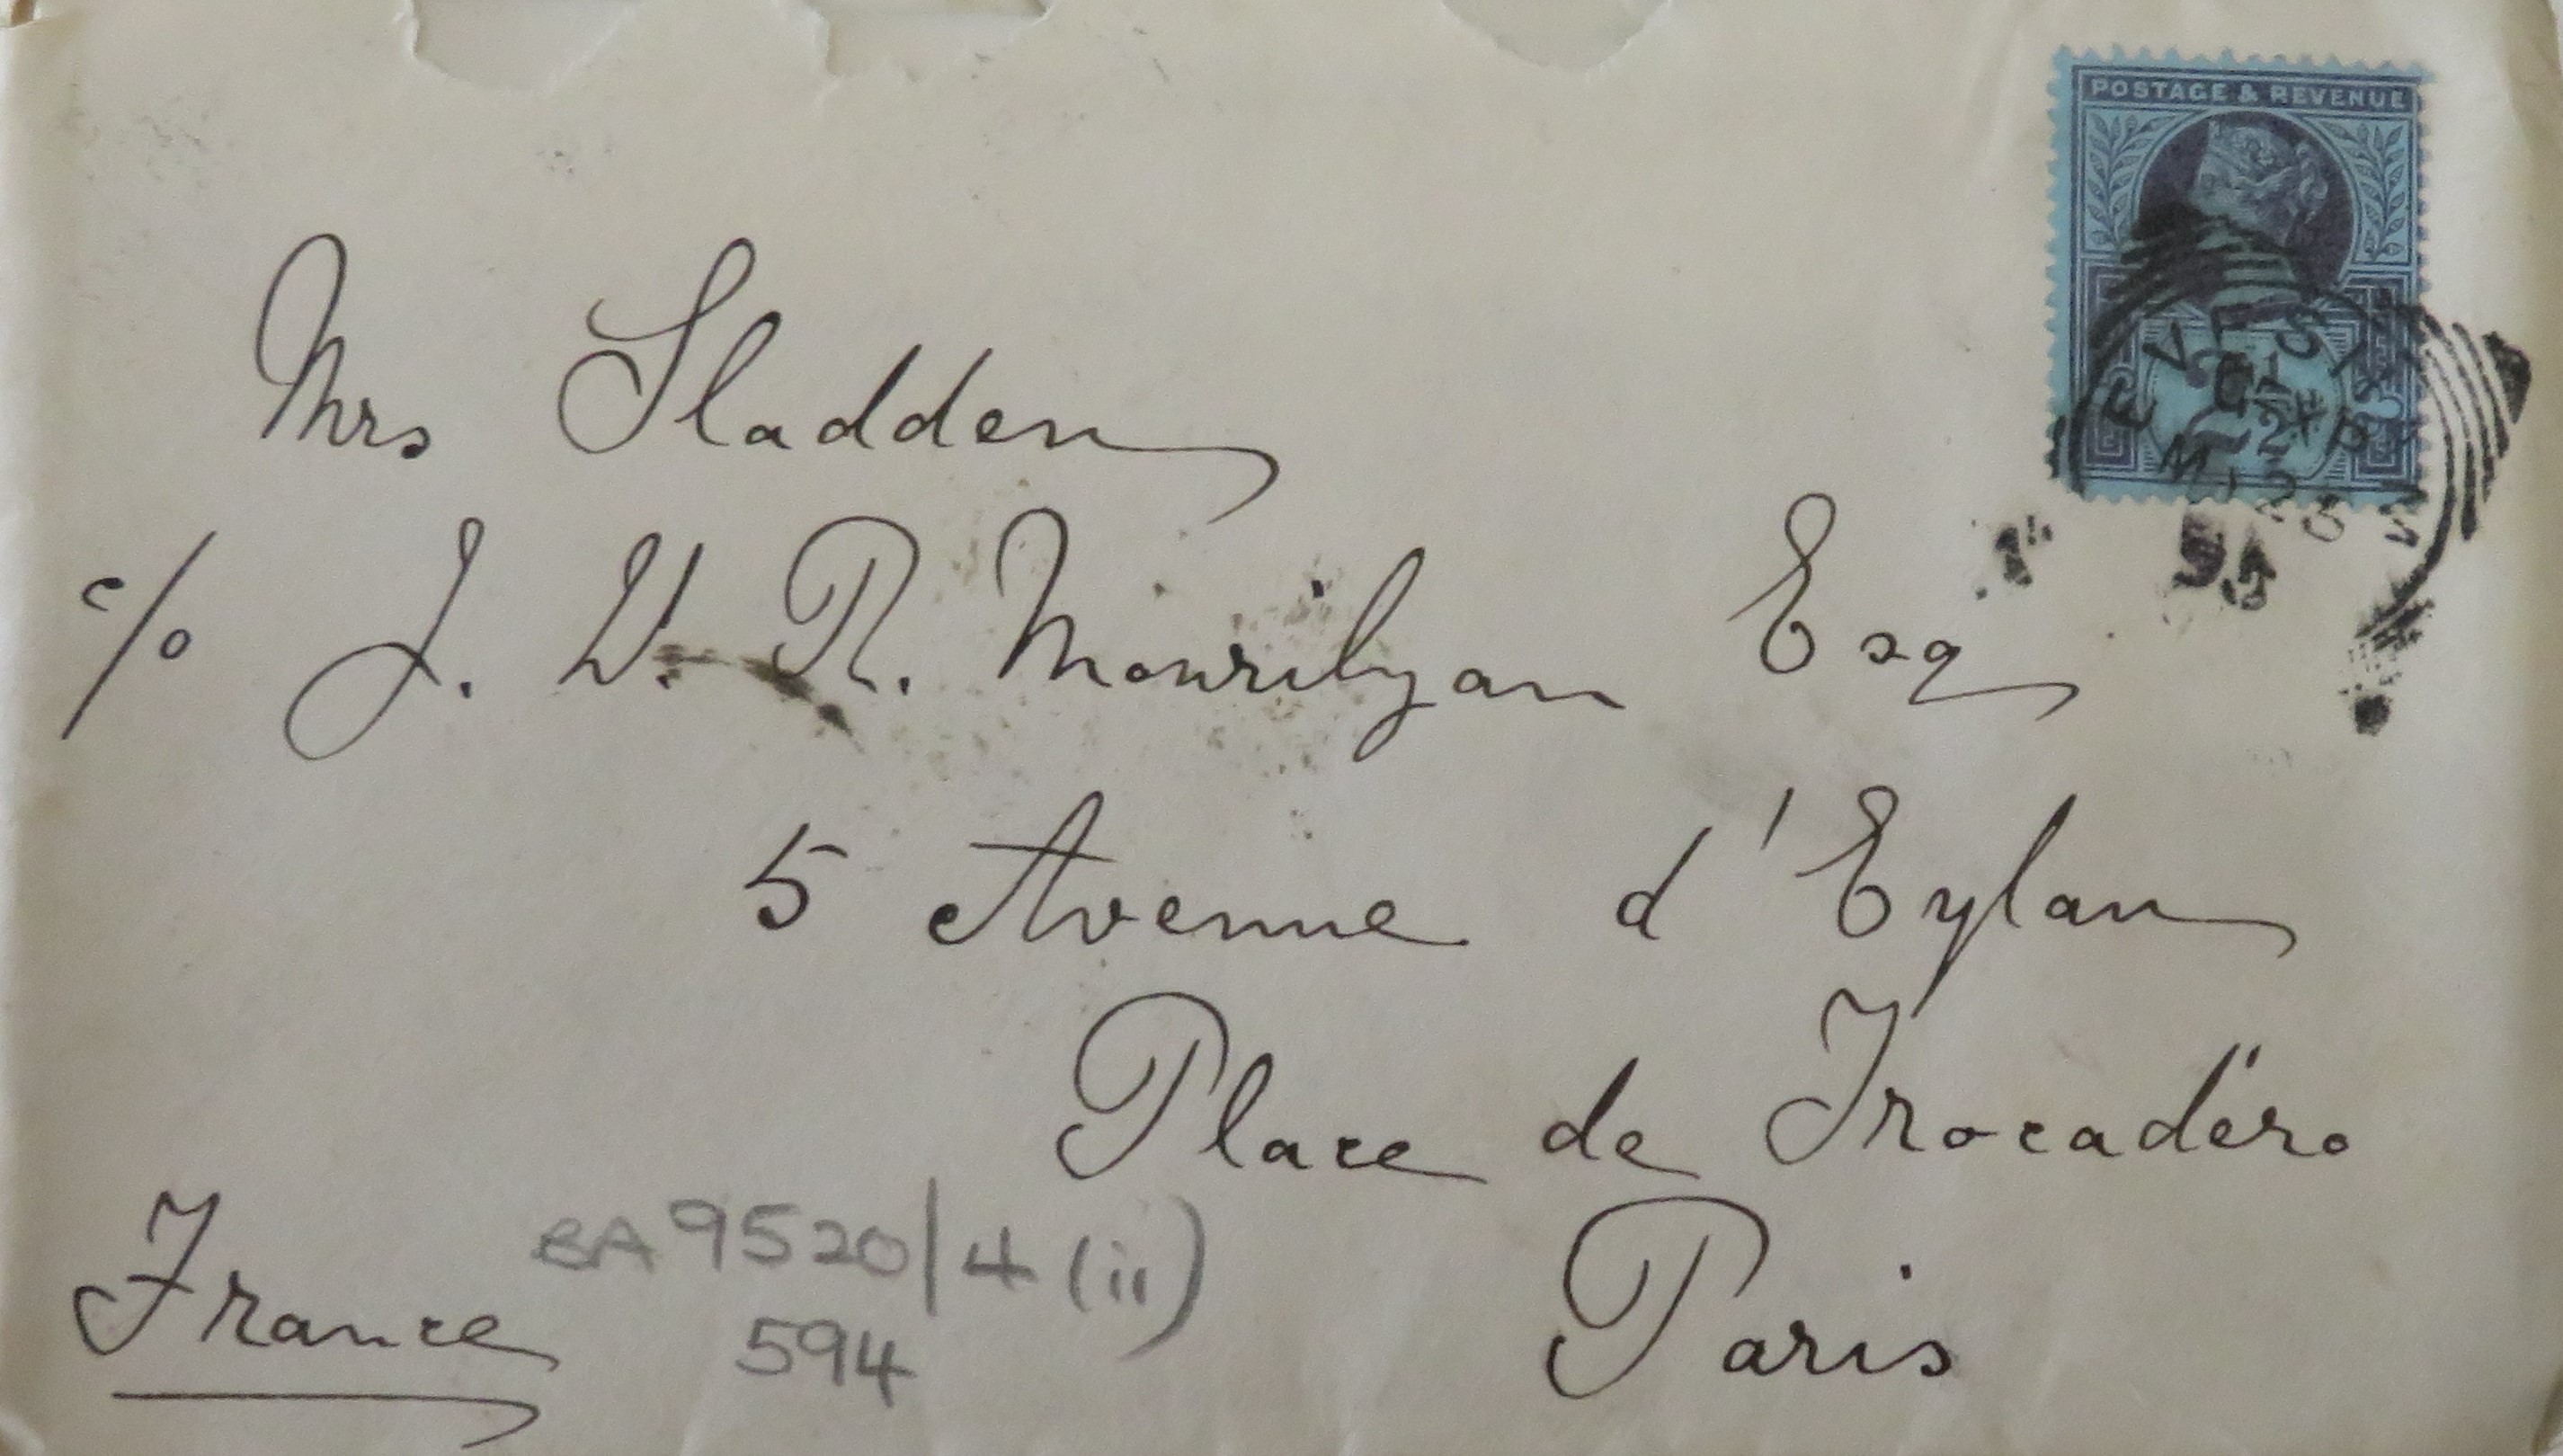 POSTAGE & REVENUE
2 1/2
Mrs Sladden
c/o J. W. R. Mourilyan Esq
5 Avenue d'Eylau
Place de Trocadéro
Paris
France
BA 9520/4 (ii)
594